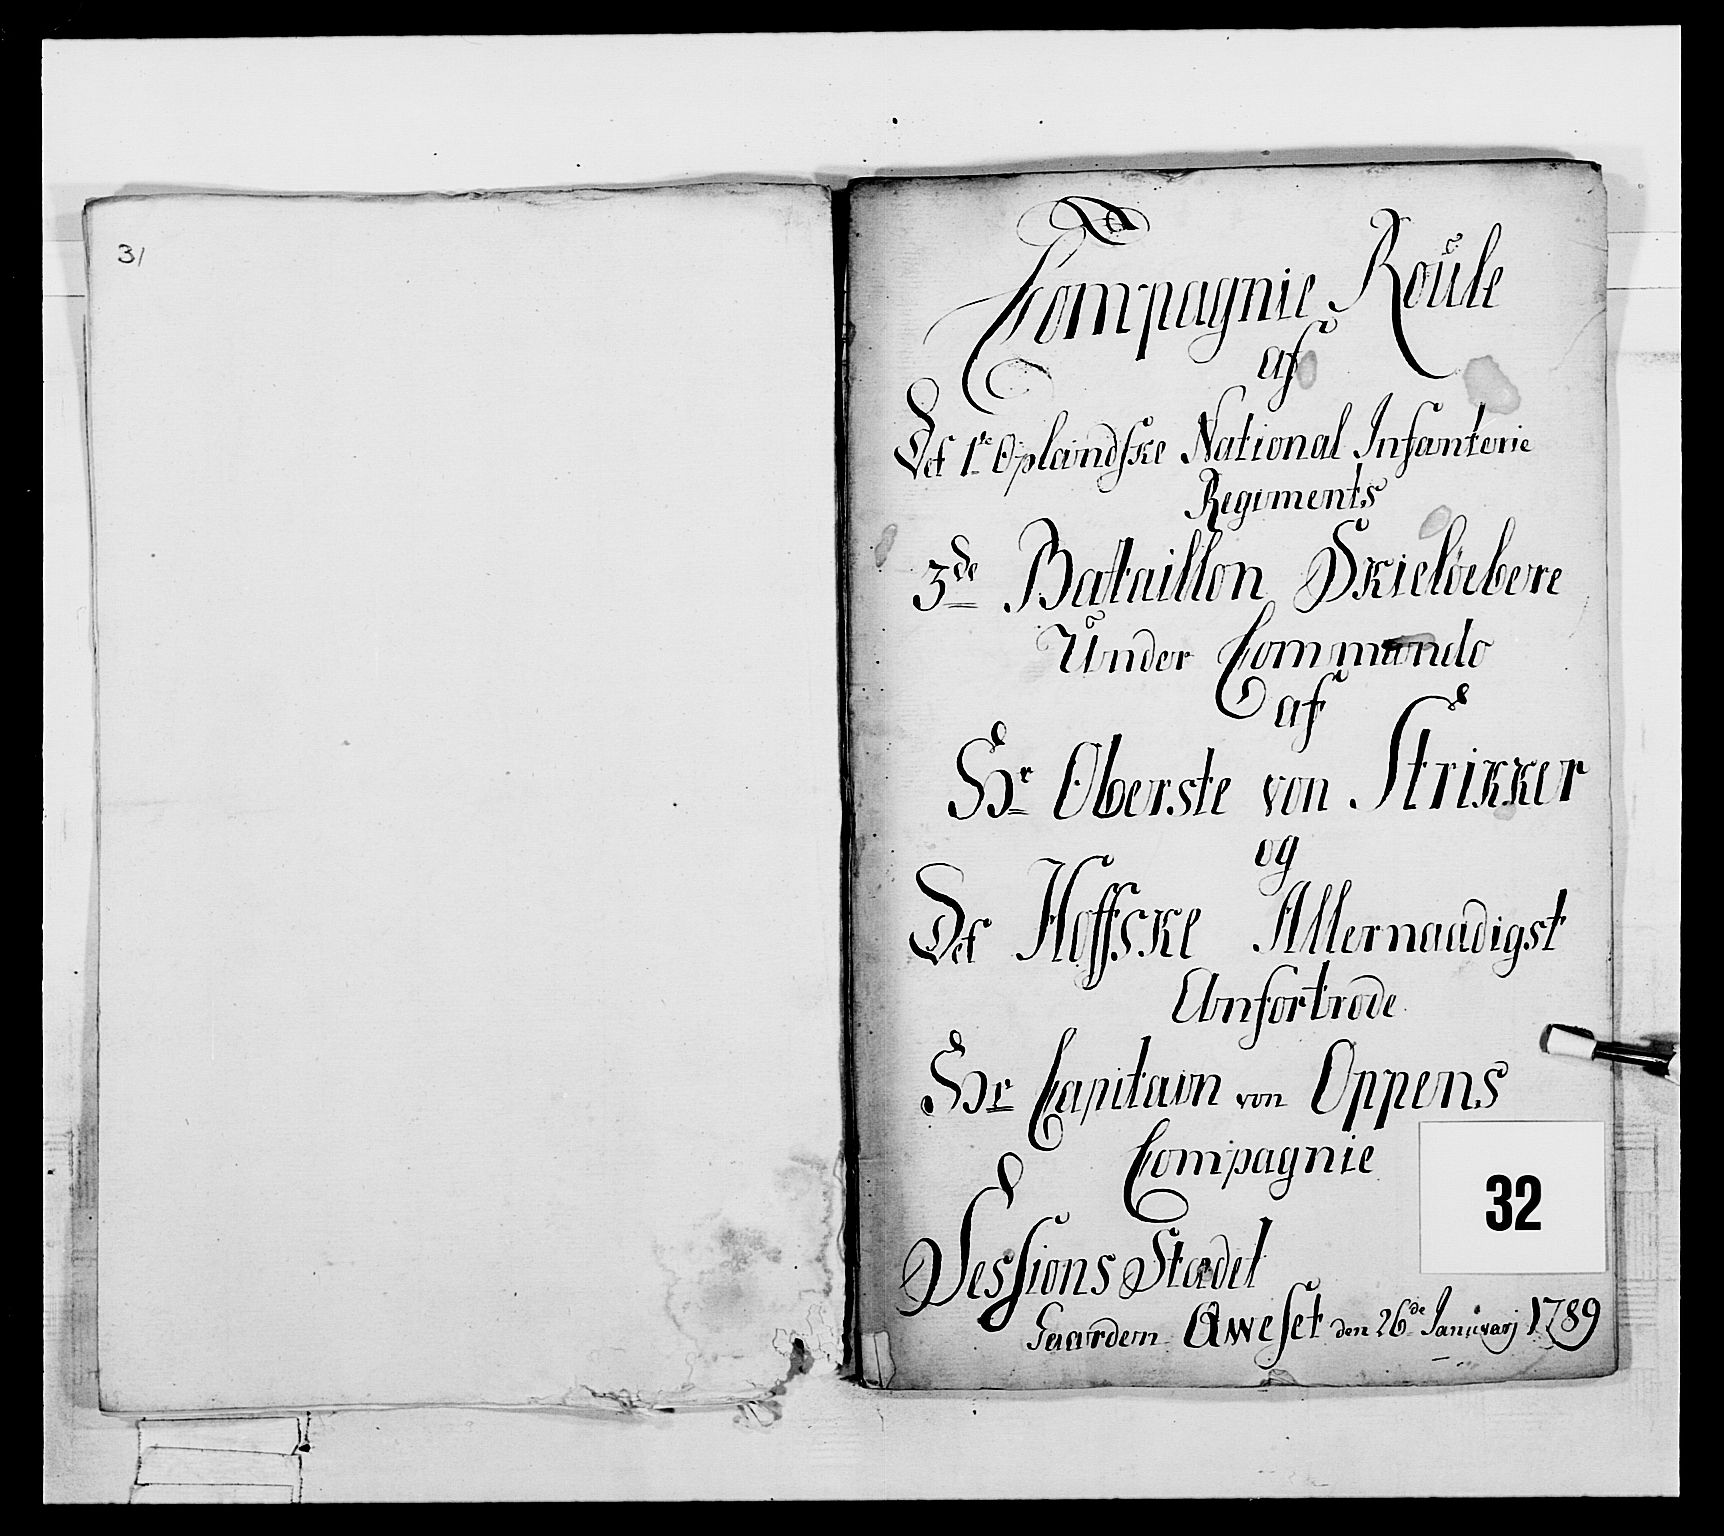 31
Compagnie Roŭle
af
Det 1te Oplandske National Infanterie
Regiments
3de Bataillon Skieløebere
Ŭnder Commando
af
Hr Oberste von Strikker
og
Det Hoffske Allernaadigst
Anfortrode
Hr Capitain von Oppens
Compagnie
32
Sessions Stædet
Gaarden Aweset den 26de Januarj 1789